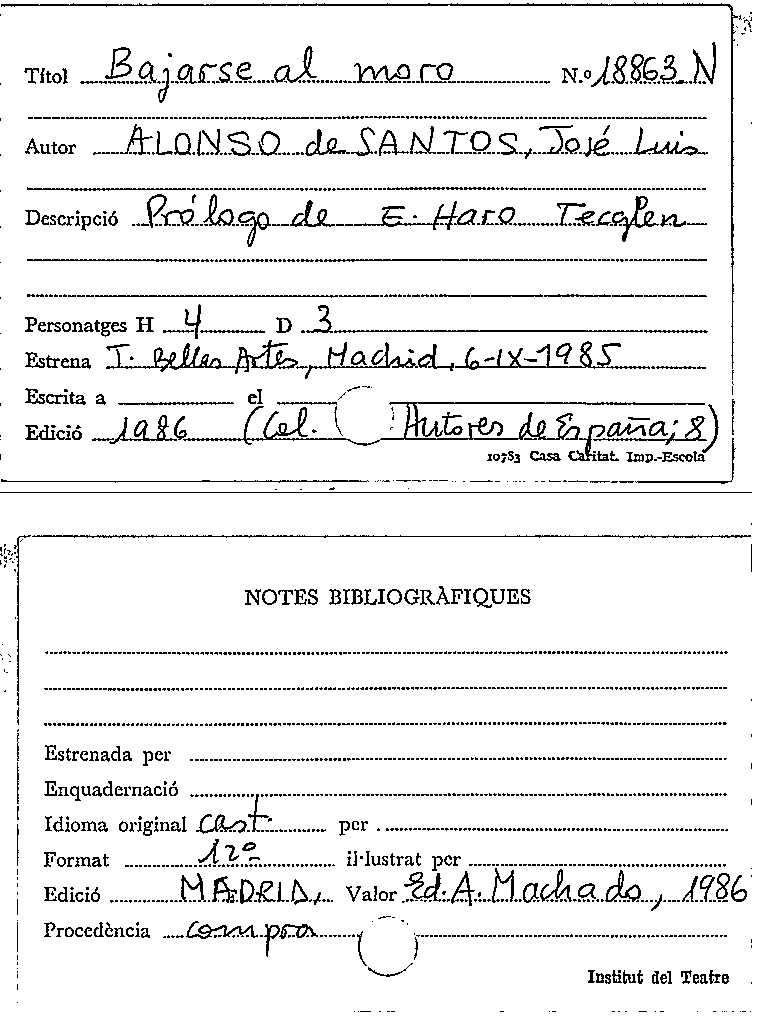 Títol Bajarse al moro N.º 18863 N
Autor ALONSO de SANTOS, José Luis
Descripció Prólogo de E. Haro Tecglen
Personatges H 4 D 3
Estrena T. Bellas Artes, Madrid, 6-IX-1985
Escrita a el
Edició 1986 (Col. Autores de España; 8)
10783 Casa Caritat. Imp.-Escola
NOTES BIBLIOGRÀFIQUES
Estrenada per
Enquadernació
Idioma original cast. per
Format 12º il·lustrat per
Edició MADRID, Valor Ed. A. Machado, 1986
Procedència compra
Institut del Teatre